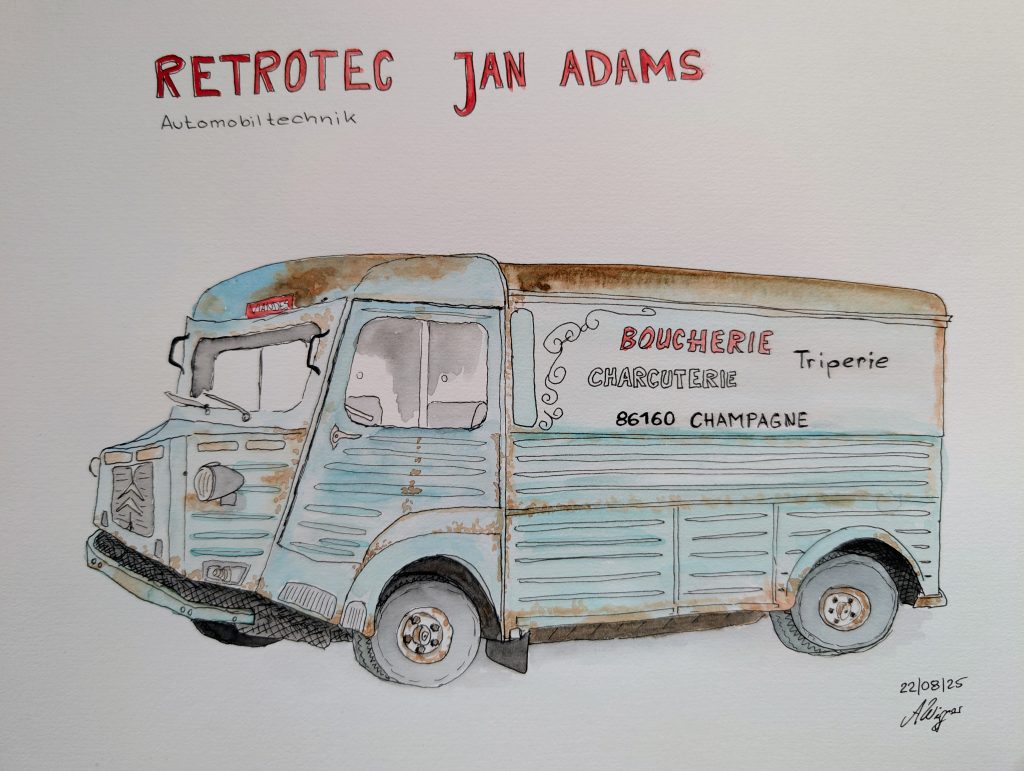 RETROTEC JAN ADAMS
Automobiltechnik
BOUCHERIE
Triperie
CHARCUTERIE
86160 CHAMPAGNE
22/08/25